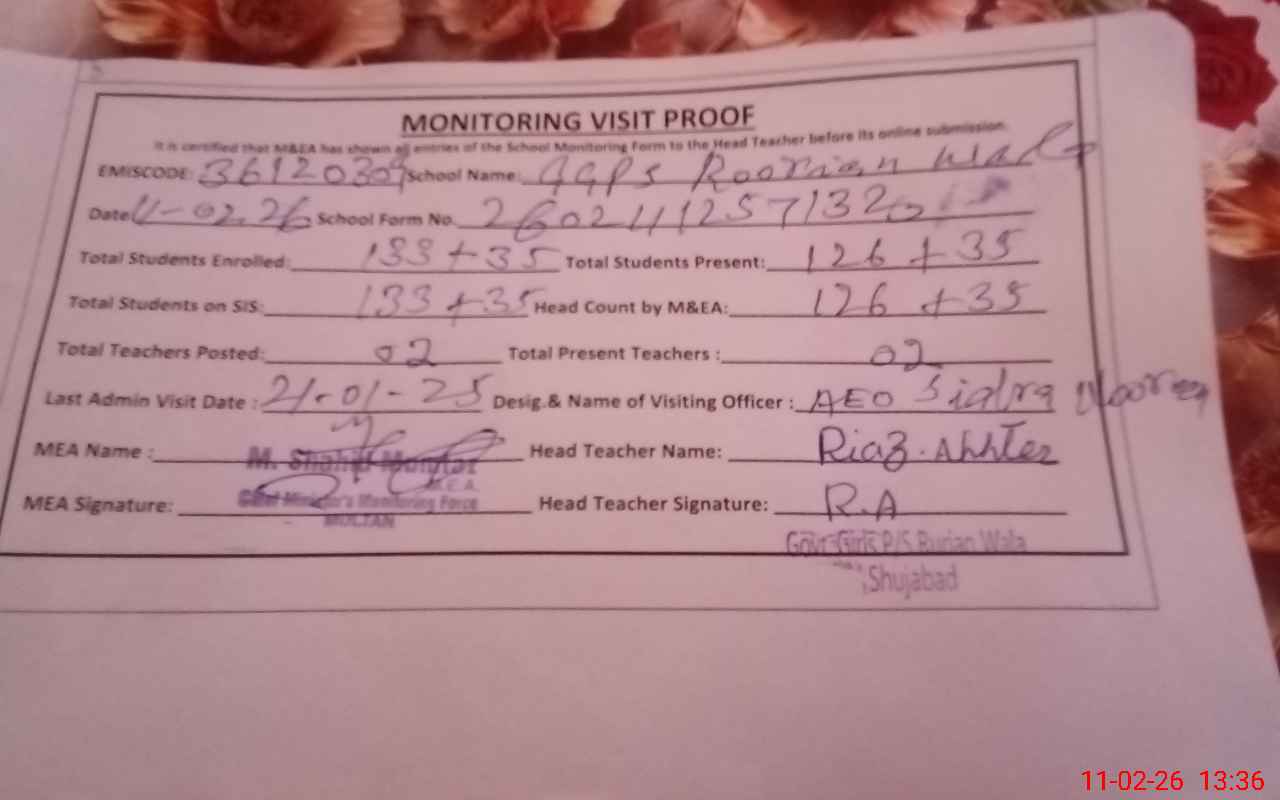 MONITORING VISIT PROOF
It is certified that M&EA has shown all entries of the School Monitoring Form to the Head Teacher before its online submission.
EMISCODE: 36120309 School Name: GGPS Roorian wala
Date 11-02.26 School Form No. 260211125713220
Total Students Enrolled: 133 + 35 Total Students Present: 126 + 35
Total Students on SIS: 133 + 35 Head Count by M&EA: 126 + 35
Total Teachers Posted: 02 Total Present Teachers : 02
Last Admin Visit Date : 21-01-25 Desig.& Name of Visiting Officer : AEO Sidra Noreen
MEA Name : M. Shahid Mumtaz Head Teacher Name: Riaz. Akhter
M.E.A
MEA Signature: Chief Minister's Monitoring Force Head Teacher Signature: R.A
MULTAN
Govt Girls P/S Rurian Wala
Shujabad
11-02-26 13:36